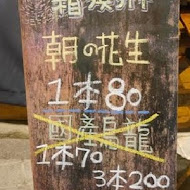 朝の花生
1本80
國產烏龍
1本70
3本200